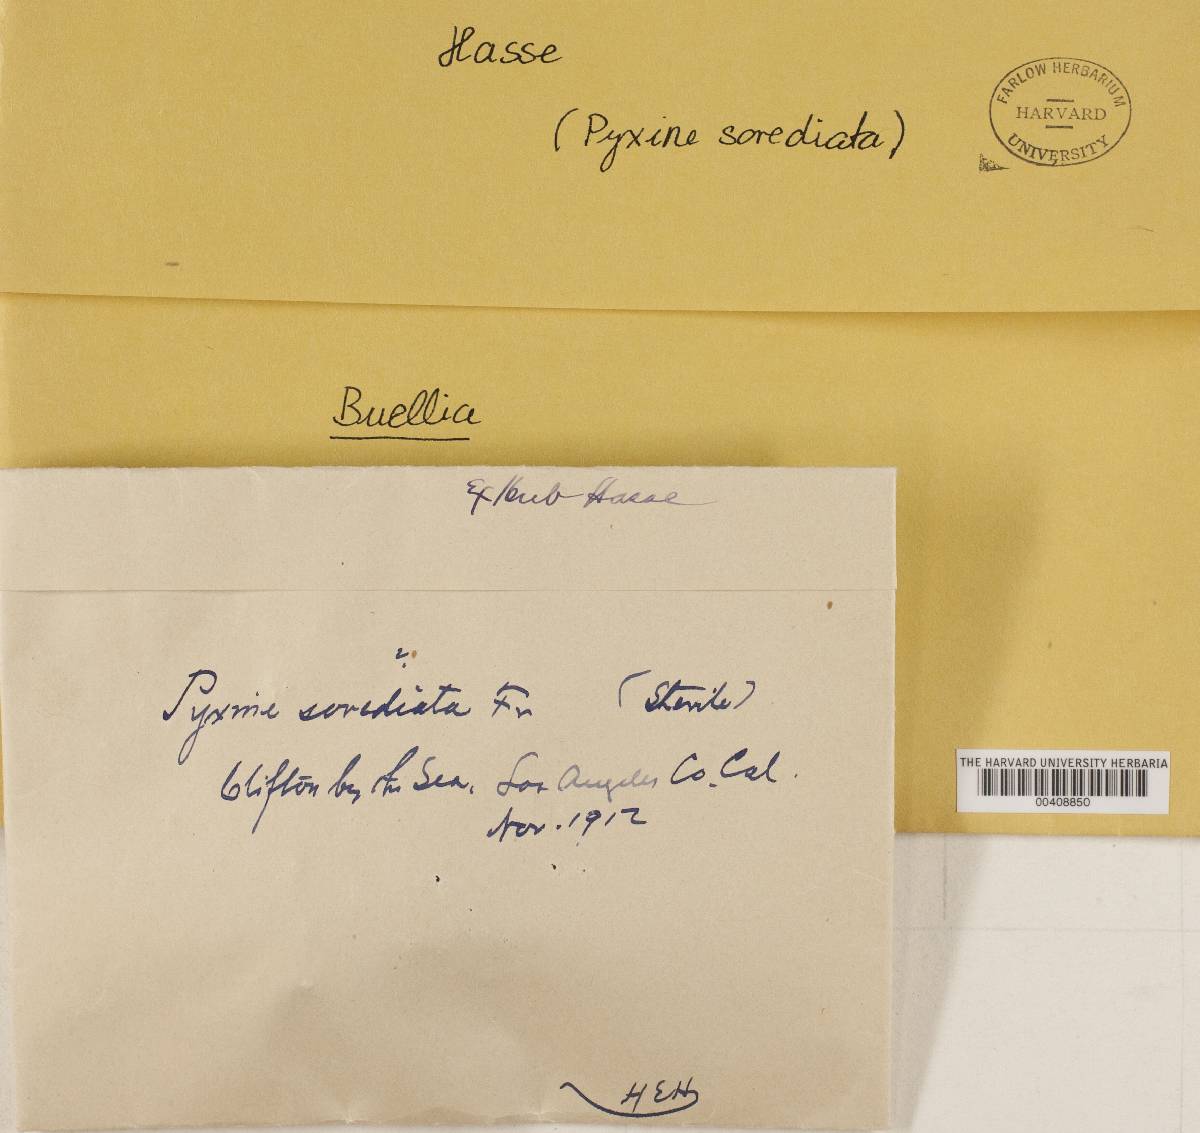 Hasse
(Pyxine sorediata)
FARLOW HERBARIUM
HARVARD
UNIVERSITY
Buellia
Ex Herb Hasse
?
Pyxine sorediata Fr (Sterile)
Clifton by the Sea. Los Angeles Co. Cal.
Nov. 1912
HEH
THE HARVARD UNIVERSITY HERBARIA
00408850